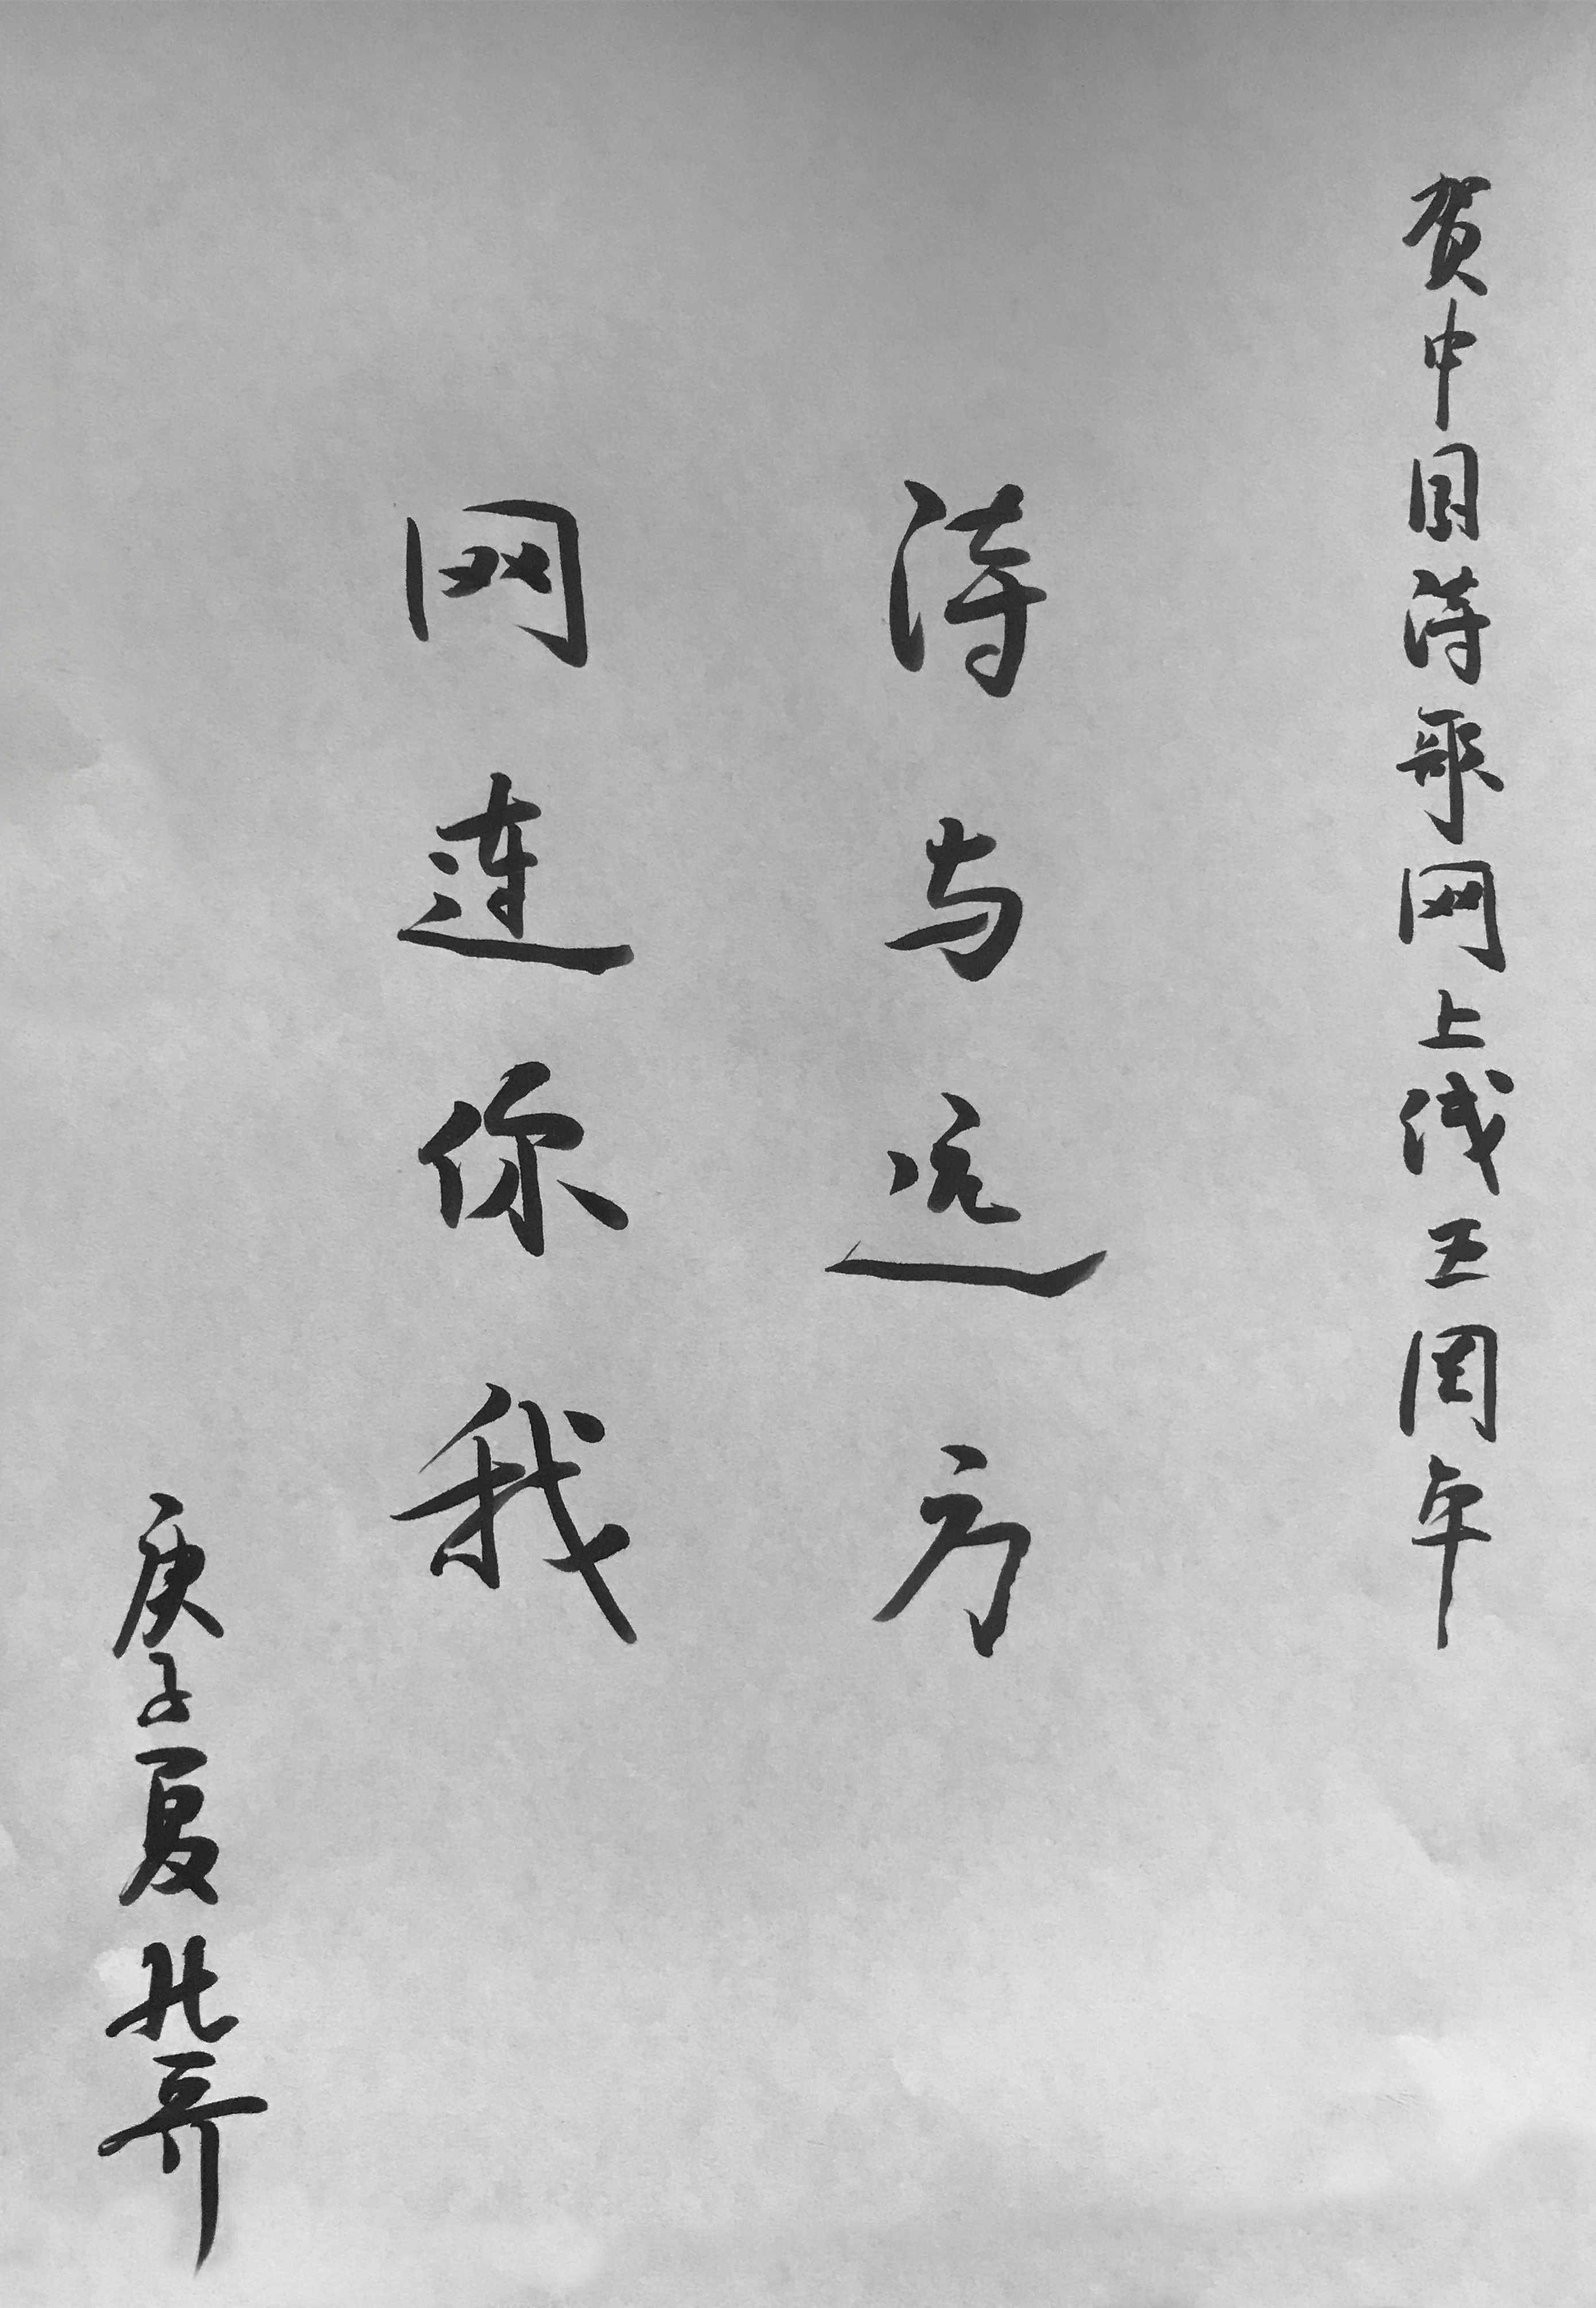 贺中国诗歌网上线五周年
诗与远方
网连你我
庚子夏北乔